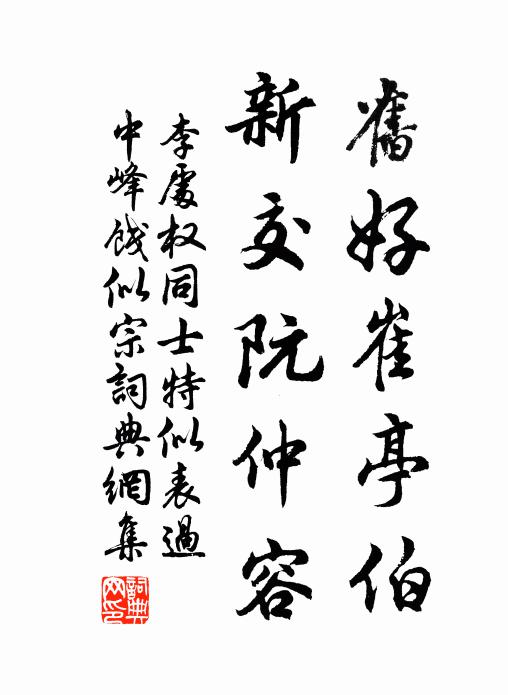 舊好崔亭伯
新交阮仲容
李處权同士特似表過
中峰餞似宗詞典網集
詞典网印